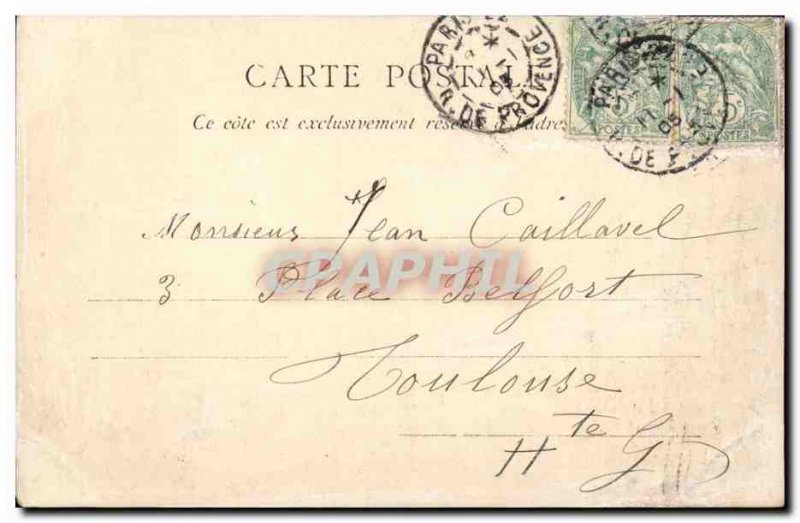 CARTE POSTALE
Ce côte est exclusivement réservé à l'adres
PARIS
R. DE PROVENCE
PARIS
R. DE P
5
POSTES
Monsieur Jean Caillavel
3 Place Belfort
Toulouse
Hte G
CPAPHIL